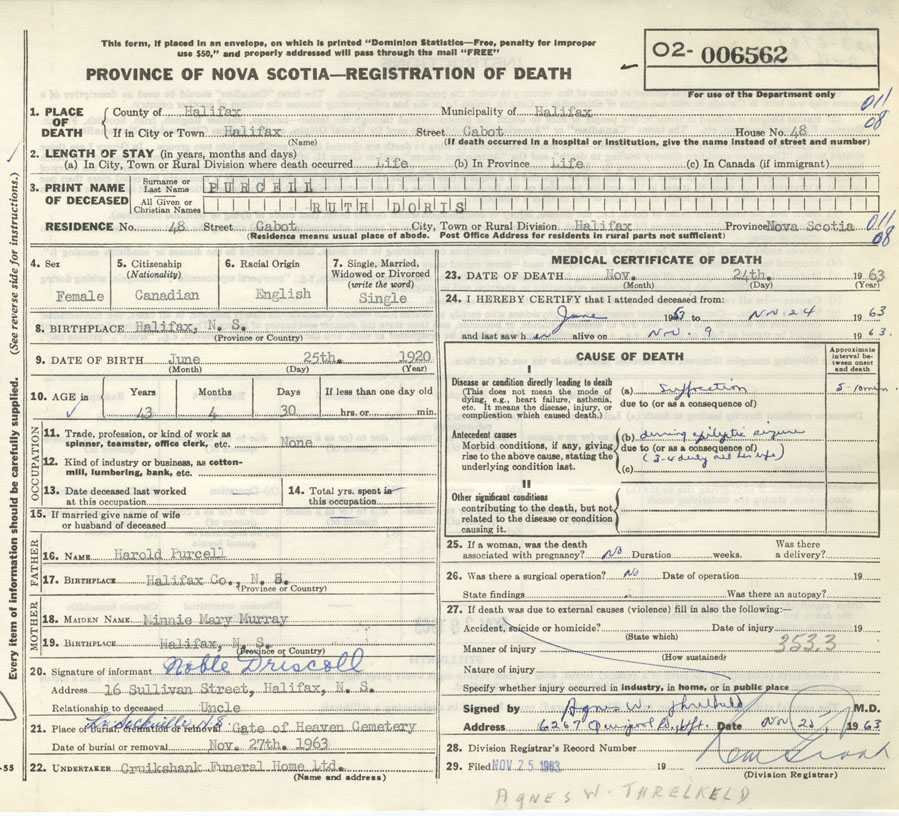 This form, if placed in an envelope, on which is printed "Dominion Statistics—Free, penalty for improper
use $50," and properly addressed will pass through the mail "FREE"
PROVINCE OF NOVA SCOTIA—REGISTRATION OF DEATH
O2- 006562
For use of the Department only
1. PLACE OF DEATH
County of Halifax Municipality of Halifax
011
08
If in City or Town Halifax Street Cabot House No. 48
(Name) (If death occurred in a hospital or institution, give the name instead of street and number)
2. LENGTH OF STAY (in years, months and days)
(a) In City, Town or Rural Division where death occurred Life (b) In Province Life (c) In Canada (if immigrant)
3. PRINT NAME OF DECEASED
Surname or Last Name PURCELL
All Given or Christian Names RUTH DORIS
RESIDENCE No. 48 Street Cabot City, Town or Rural Division Halifax Province Nova Scotia
011
08
(Residence means usual place of abode. Post Office Address for residents in rural parts not sufficient)
4. Sex
Female
5. Citizenship (Nationality)
Canadian
6. Racial Origin
English
7. Single, Married, Widowed or Divorced (write the word)
Single
8. BIRTHPLACE Halifax, N. S.
(Province or Country)
9. DATE OF BIRTH June 25th. 1920
(Month) (Day) (Year)
10. AGE in
Years Months Days If less than one day old
43 4 30 hrs. or min.
OCCUPATION
11. Trade, profession, or kind of work as
spinner, teamster, office clerk, etc. None
12. Kind of industry or business, as cotton-
mill, lumbering, bank, etc.
13. Date deceased last worked
at this occupation
14. Total yrs. spent in
this occupation
15. If married give name of wife
or husband of deceased
FATHER
16. NAME Harold Purcell
17. BIRTHPLACE Halifax Co., N. S.
(Province or Country)
MOTHER
18. MAIDEN NAME Minnie Mary Murray
19. BIRTHPLACE Halifax, N. S.
(Province or Country)
20. Signature of informant Noble Driscoll
Address 16 Sullivan Street, Halifax, N. S.
Relationship to deceased Uncle
Lr. Sackville N.S.
21. Place of burial, cremation or removal Gate of Heaven Cemetery
Date of burial or removal Nov. 27th. 1963
22. UNDERTAKER Cruikshank Funeral Home Ltd.
(Name and address)
Every item of information should be carefully supplied. (See reverse side for instructions.)
-55
MEDICAL CERTIFICATE OF DEATH
23. DATE OF DEATH Nov. 24th. 19 63
(Month) (Day) (Year)
24. I HEREBY CERTIFY that I attended deceased from:
June 1963 to Nov. 24 19 63
and last saw her alive on Nov. 9 19 63.
CAUSE OF DEATH
Approximate interval between onset and death
I
Disease or condition directly leading to death
(This does not mean the mode of
dying, e.g., heart failure, asthenia,
etc. It means the disease, injury, or
complication which caused death.)
(a) Suffocation 5-10 min.
due to (or as a consequence of)
Antecedent causes
Morbid conditions, if any, giving
rise to the above cause, stating the
underlying condition last.
(b) during epileptic seizure
due to (or as a consequence of)
(c)
II
Other significant conditions
contributing to the death, but not
related to the disease or condition
causing it.
25. If a woman, was the death
associated with pregnancy? No Duration weeks. Was there
a delivery?
26. Was there a surgical operation? No Date of operation 19
State findings Was there an autopsy?
27. If death was due to external causes (violence) fill in also the following:—
Accident, suicide or homicide? Date of injury 19
(State which)
353.3
Manner of injury
(How sustained)
Nature of injury
Specify whether injury occurred in industry, in home, or in public place
Signed by Agnes W. Threlkeld M.D.
Address 6267 Quinpool Rd. Hfx. Date Nov 25 1963
28. Division Registrar's Record Number
29. Filed NOV 25 1963 19
(Division Registrar)
AGNES W. THRELKELD